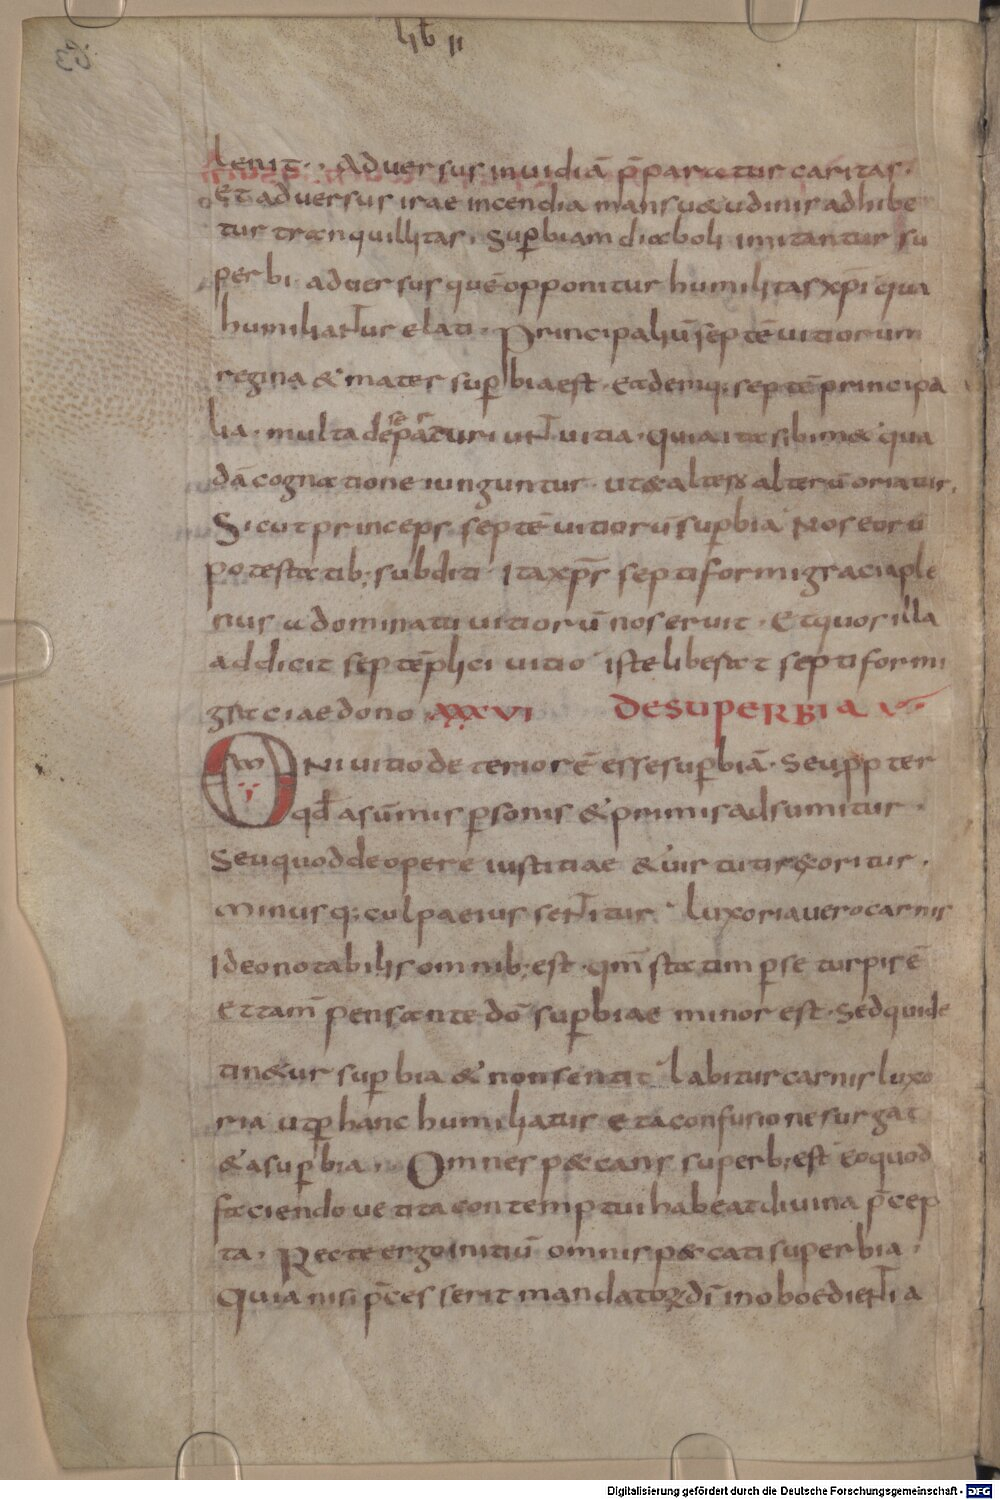 lib II
lenit. Adversus invidiā p̄paratur caritas.
Et adversus irae incendia mansu&udinis adhibe
tur tranquillitas. Sup̱biam diaboli imitantur su
perbi adversus quē opponitur humilitas xp̄i qua
humiliantur elati. Principaliū septē vitiorum
regina & mater sup̱bia est. Eademq; septē principa
lia. multa de se parturiunt vitia. quia ita sibim& qua
dā cognatione iunguntur. ut & altero alterū oriatur.
Sicut princeps septē vitiorū sup̱bia nos eorū
potestatib; subditi Ita xp̄s septiformi gracia ple
nus a dominatu vitiorū nos eruit. Et quos illa
addicit septēplici vitio iste liberat septiformi
graciae dono XXXVI DE SUPERBIA
Omni vitio deteriorē esse sup̱biā. Seu ꝓpter
qđ a sūmis p̱sonis & primis adsumitur.
Seu quod de opere iustitiae & virtutis exoritur.
Minusq; culpa eius sentitur. luxoria vero carnis
Ideo notabilis omnib; est. qm̄ statim p̱ se turpis ē
Et tam̄ pensante dō sup̱biae minor est. Sed qui de
tin&ur sup̱bia & non sentit labitur carnis luxo
ria ut p̱ hanc humiliatus et a confusione surgat
& a sup̱bia. Omnes pecans superb; est eo quod
faciendo vetita contemptui habeat divina p̄cep
ta. Recte ergo initiū omnis peccati superbia.
Quia nisi p̄cesserit mandatoꝝ dī inoboedientia
Digitalisierung gefördert durch die Deutsche Forschungsgemeinschaft - DFG